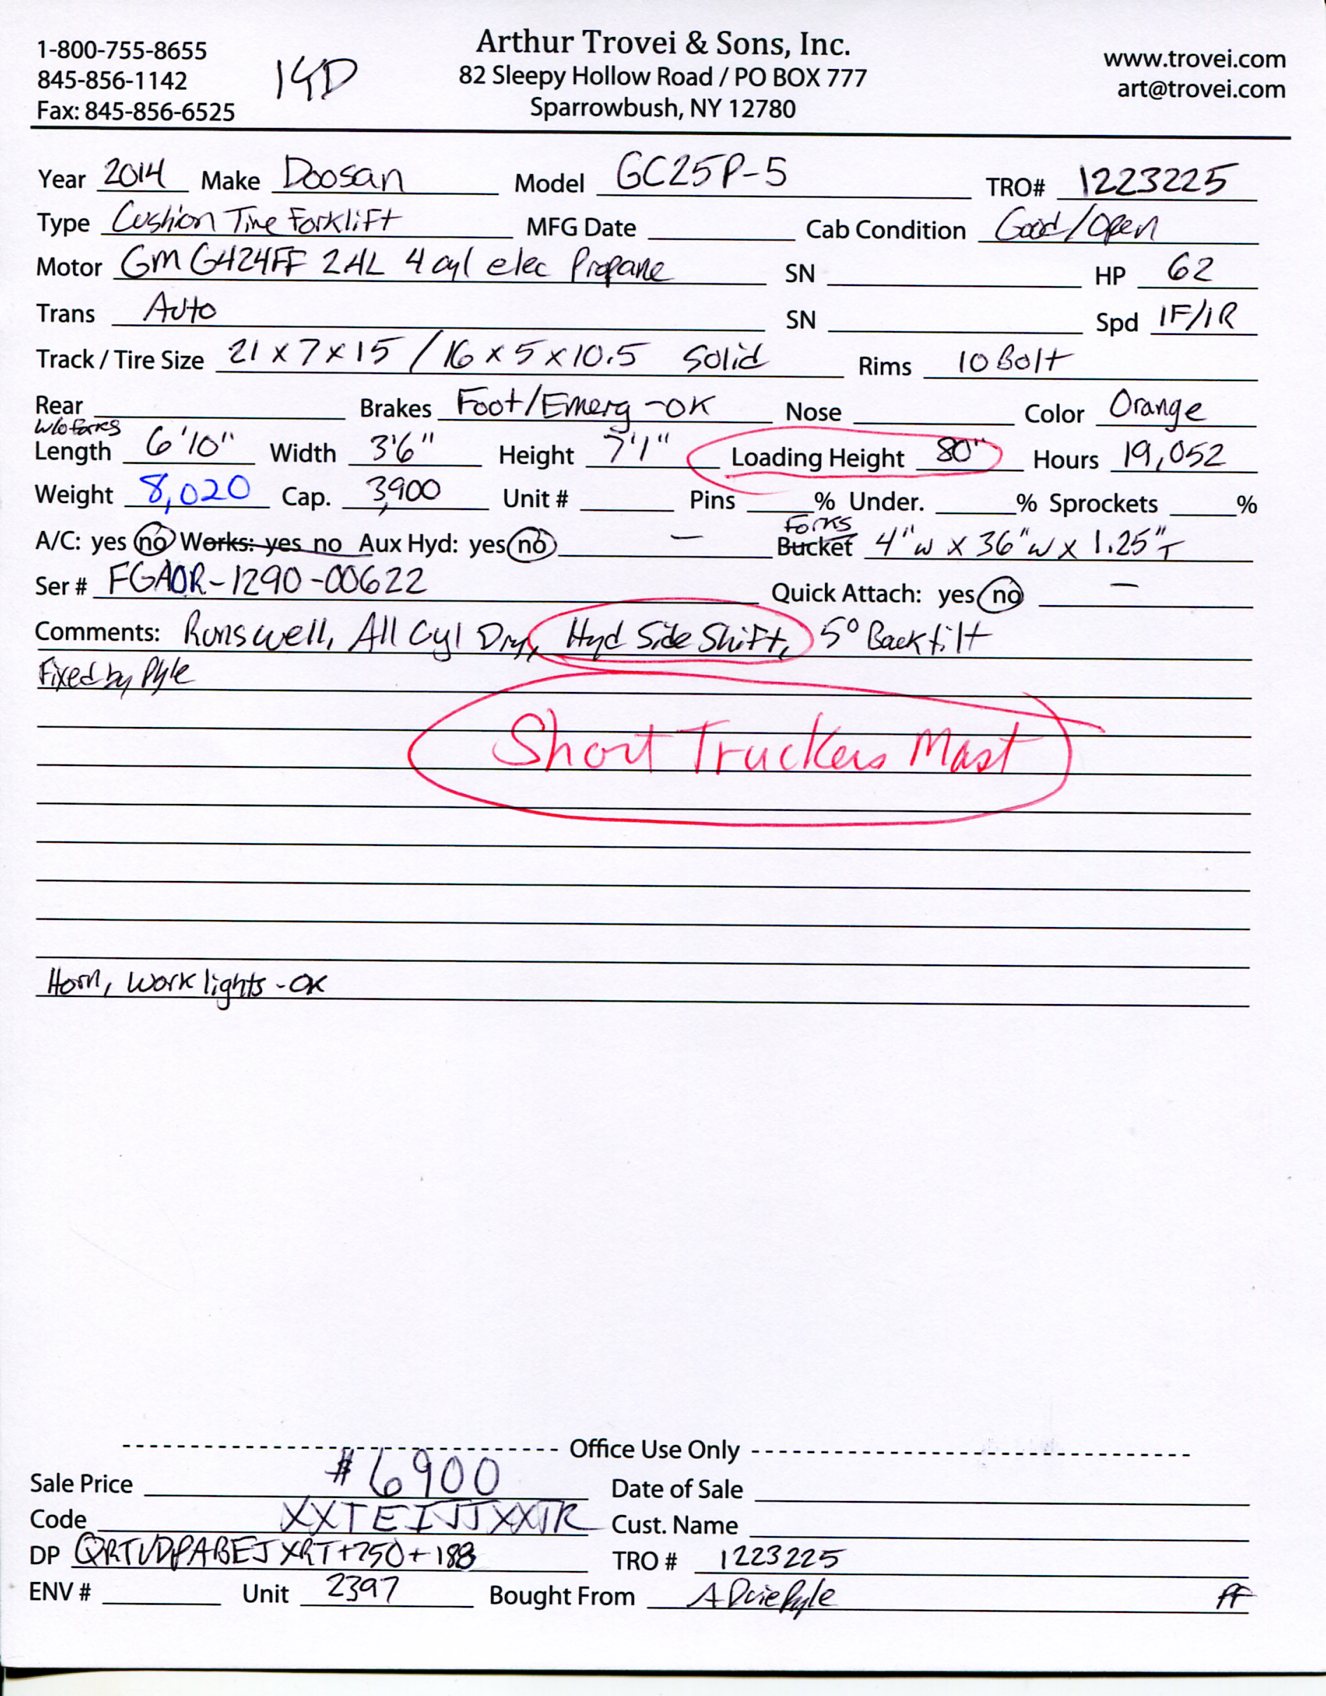 1-800-755-8655
845-856-1142
Fax: 845-856-6525
Arthur Trovei & Sons, Inc.
82 Sleepy Hollow Road / PO BOX 777
Sparrowbush, NY 12780
www.trovei.com
art@trovei.com
Year 2014 Make Doosan Model GC25P-5 TRO# 1223225
Type Cushion Tire Forklift MFG Date Cab Condition Good/Open
Motor GM G424FF 2.4L 4 cyl elec Propane SN HP 62
Trans Auto SN Spd 1F/1R
Track / Tire Size 21 x 7 x 15 / 16 x 5 x 10.5 Solid Rims 10 Bolt
Rear Brakes Foot/Emerg-OK Nose Color Orange
w/o forks
Length 6'10" Width 3'6" Height 7'1" Loading Height 80" Hours 19,052
Weight 8,020 Cap. 3,900 Unit # Pins % Under. % Sprockets %
Forks
A/C: yes no Works: yes no Aux Hyd: yes no — Bucket 4"w x 36"w x 1.25"T
Ser # FGA0R-1290-00622 Quick Attach: yes no —
Comments: Runs well, All Cyl Dry, Hyd Side Shift, 5° Back tilt
Fixed by Pyle
Short Truckers Mast
Horn, Work lights - OK
Office Use Only
Sale Price $6900 Date of Sale
Code XXTEIJJXXTR Cust. Name
DP QRTVDPABEJXRT+750+188 TRO # 1223225
ENV # Unit 2397 Bought From